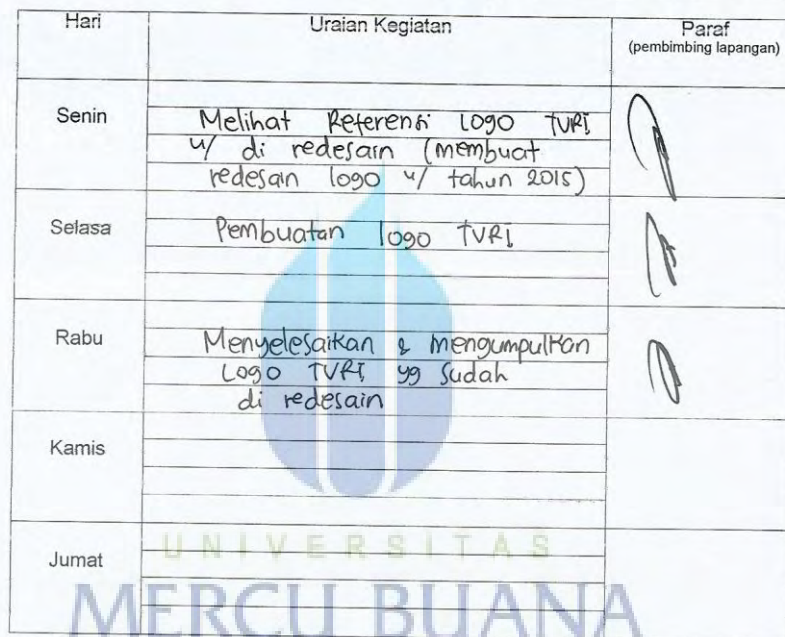 Hari Uraian Kegiatan Paraf
(pembimbing lapangan)
Senin Melihat Referensi Logo TVRI
u/ di redesain (membuat
redesain logo u/ tahun 2015)
Selasa Pembuatan logo TVRI
Rabu Menyelesaikan & mengumpulkan
Logo TVRI yg sudah
di redesain
Kamis
Jumat
UNIVERSITAS
MERCU BUANA